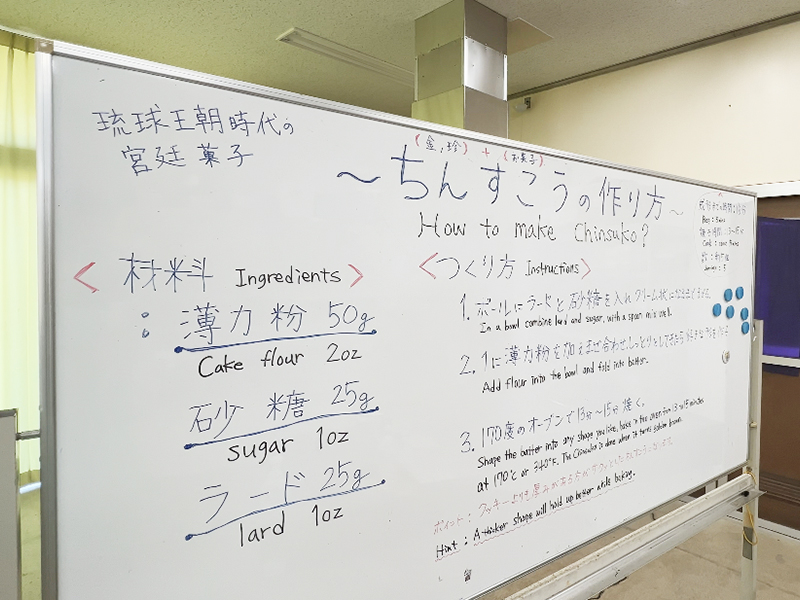 琉球王朝時代の
宮廷菓子
(金,珍) + (お菓子)
～ちんすこうの作り方～
How to make Chinsuko?
<材料 Ingredients>
薄力粉 50g
Cake flour 2oz
砂糖 25g
sugar 1oz
ラード 25g
lard 1oz
<つくり方 Instructions>
1. ボールにラードと砂糖を入れクリーム状になるまで
In a bowl combine lard and sugar, with a spoon mix well.
2. 1に薄力粉を加えまぜ合わせ、しっとりとしてきたら
Add flour into the bowl and fold into batter.
3. 170度のオーブンで13分～15分 焼く。
Shape the batter into any shape you like, bake in the oven for 13 to 15 minutes
at 170℃ or 340°F. The Chinsuko is done when it turns golden brown.
ポイント: クッキーよりも厚みがある方が
Hint: A thicker shape will hold up better while baking.